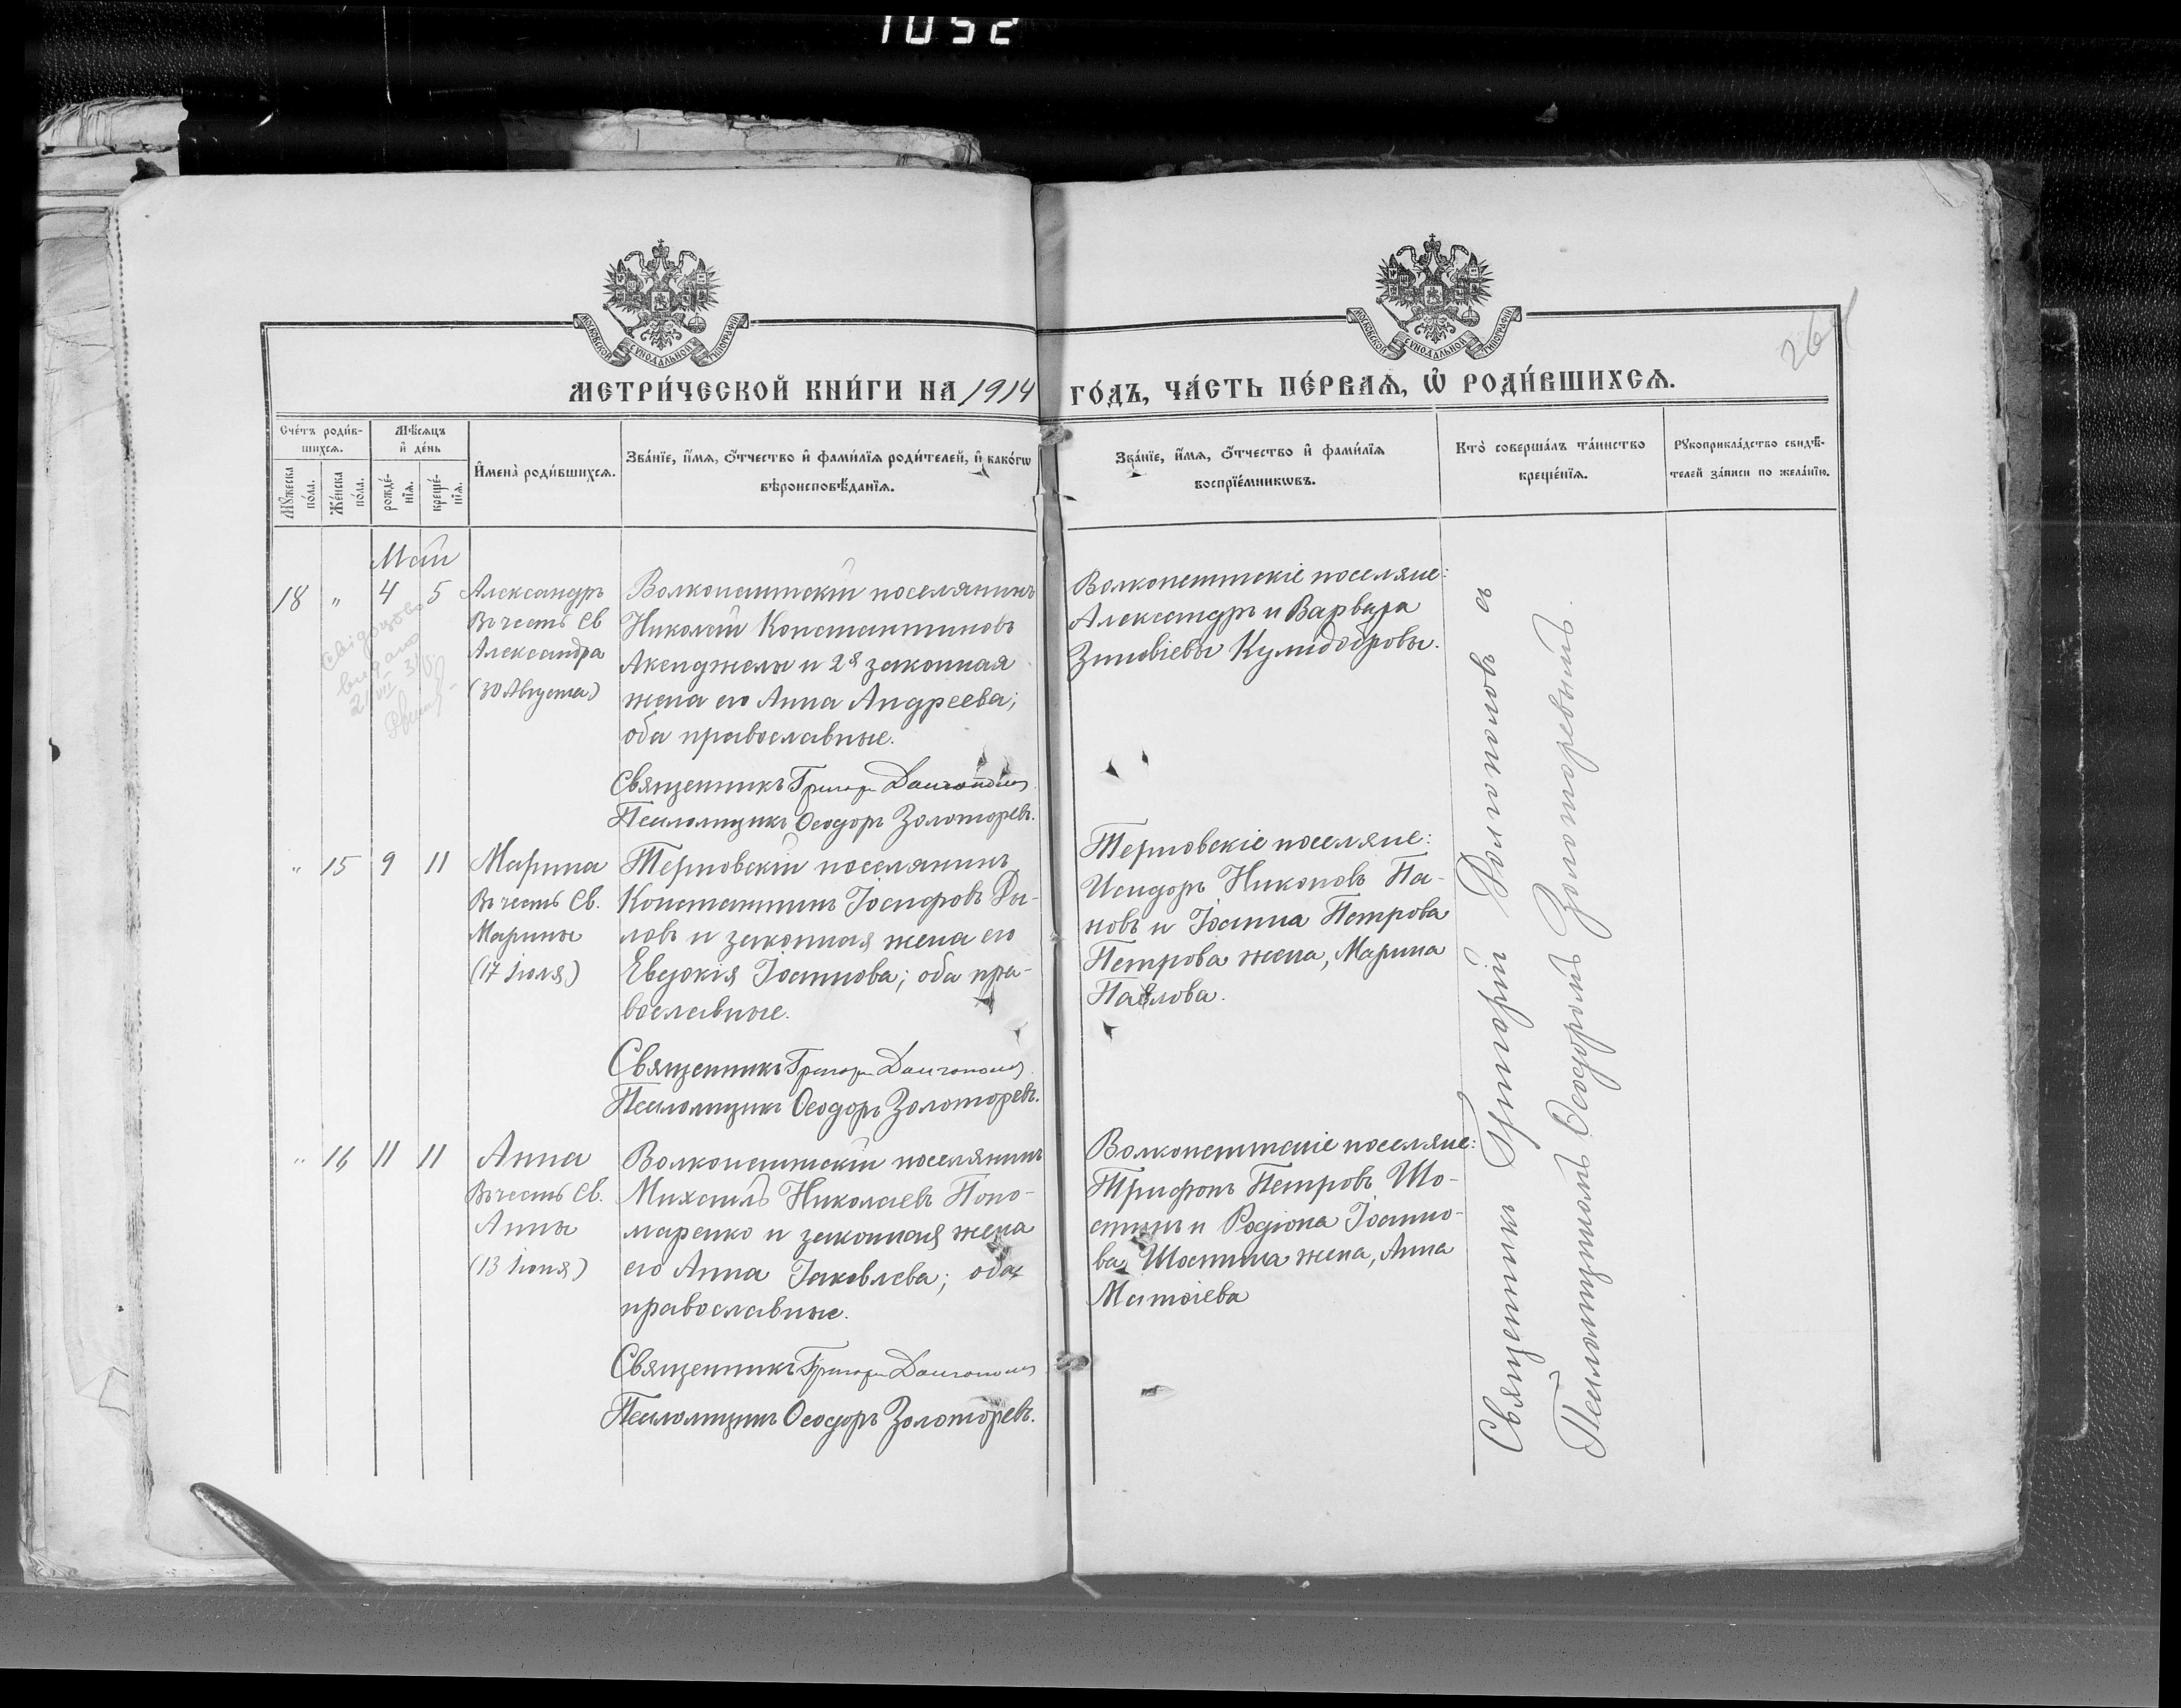 1052
МОСКОВСКОЙ СѴНОДАЛЬНОЙ ТИПОГРАФІИ
МОСКОВСКОЙ СѴНОДАЛЬНОЙ ТИПОГРАФІИ
264
МЕТРИ́ЧЕСКОЙ КНИ́ГИ НА 1914 ГО́ДЪ, ЧА́СТЬ ПЕ́РВАѦ, Ѽ РОДИ́ВШИХСѦ.
Сче́тъ роди́в-
шихсѧ.
Мꙋ́жеска
по́ла.
Же́нска
по́ла.
Мѣ́сѧцъ
и҆ де́нь
рожде́-
нїѧ.
креще́-
нїѧ.
И҆мена̀ роди́вшихсѧ.
Зва́нїе, и҆́мѧ, ѻ҆́тчество и҆ фами́лїѧ роди́телей, и҆ како́гѡ
вѣроисповѣ́данїѧ.
Зва́нїе, и҆́мѧ, ѻ҆́тчество и҆ фами́лїѧ
воспрїе́мникѡвъ.
Кто̀ соверша́лъ та́инство
креще́нїѧ.
Рꙋкоприкла́дство свидѣ́-
телей за́писи по жела́нїю.
Май
18 " 4 5
Александръ
Въ честь Св
Александра
(30 Августа)
Волконештскій поселянинъ
Николай Константиновъ
Акенджелы и 2я законная
жена его Анна Андреева;
оба православные.
Священникъ Григорій Долгополовъ
Псаломщикъ Ѳеодоръ Золоторевъ.
Волконештскіе поселяне:
Александръ и Варвара
Зиновіевы Кулидобровы.
" 15 9 11
Марина
Въ честь Св.
Марины
(17 Іюля)
Терновскій поселянинъ
Константинъ Іосифовъ Ды-
ловъ и законная жена его
Евдокія Іоаннова; оба пра-
вославные.
Священникъ Григорій Долгополовъ
Псаломщикъ Ѳеодоръ Золоторевъ.
Терновскіе поселяне:
Исидоръ Никоновъ Па-
новъ и Іоанна Петрова
Петрова жена, Марина
Павлова.
" 16 11 11
Анна
Въ честь Св.
Анны
(13 Іюня)
Волконештскій поселянинъ
Михаилъ Николаевъ Поно-
маренко и законная жена
его Анна Іаковлева; оба
православные.
Священникъ Григорій Долгополовъ
Псаломщикъ Ѳеодоръ Золоторевъ.
Волконештскіе поселяне:
Трифонъ Петровъ Шо-
стинъ и Родіона Іоанно-
ва Шостина жена, Анна
Матѳіева
Священникъ Григорій Долгополовъ съ
Псаломщикомъ Ѳеодоромъ Золоторевымъ.